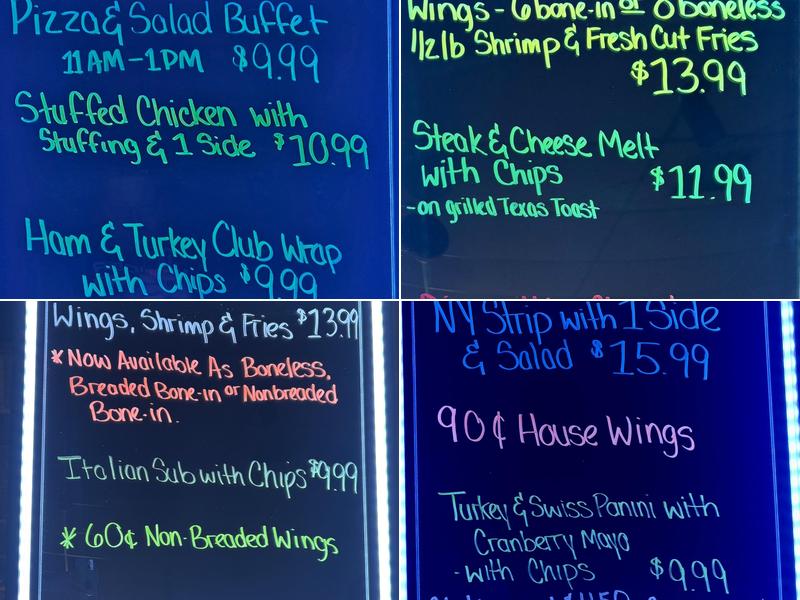 Pizza & Salad Buffet
11AM-1PM $9.99
Stuffed Chicken with
Stuffing & 1 Side $10.99
Ham & Turkey Club Wrap
with Chips $9.99
Wings - 6 bone-in or 8 boneless
1/2 lb Shrimp & Fresh Cut Fries
$13.99
Steak & Cheese Melt
with Chips $11.99
-on grilled Texas Toast
Wings, Shrimp & Fries $13.99
* Now Available As Boneless,
Breaded Bone-in or Nonbreaded
Bone-in.
Italian Sub with Chips $9.99
* 60¢ Non-Breaded Wings
NY Strip with 1 Side
& Salad $15.99
90¢ House Wings
Turkey & Swiss Panini with
Cranberry Mayo
-with Chips $9.99